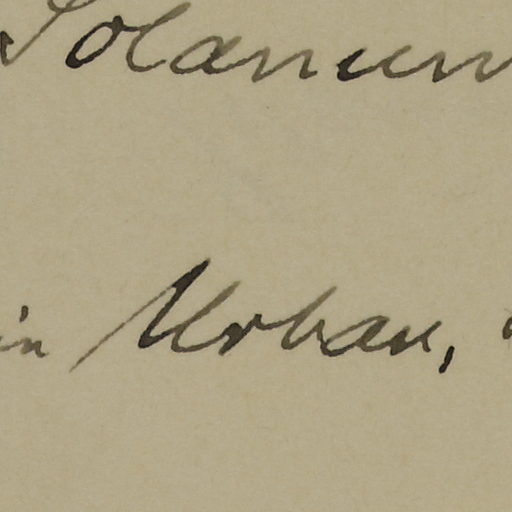 Solanum
in Urban,